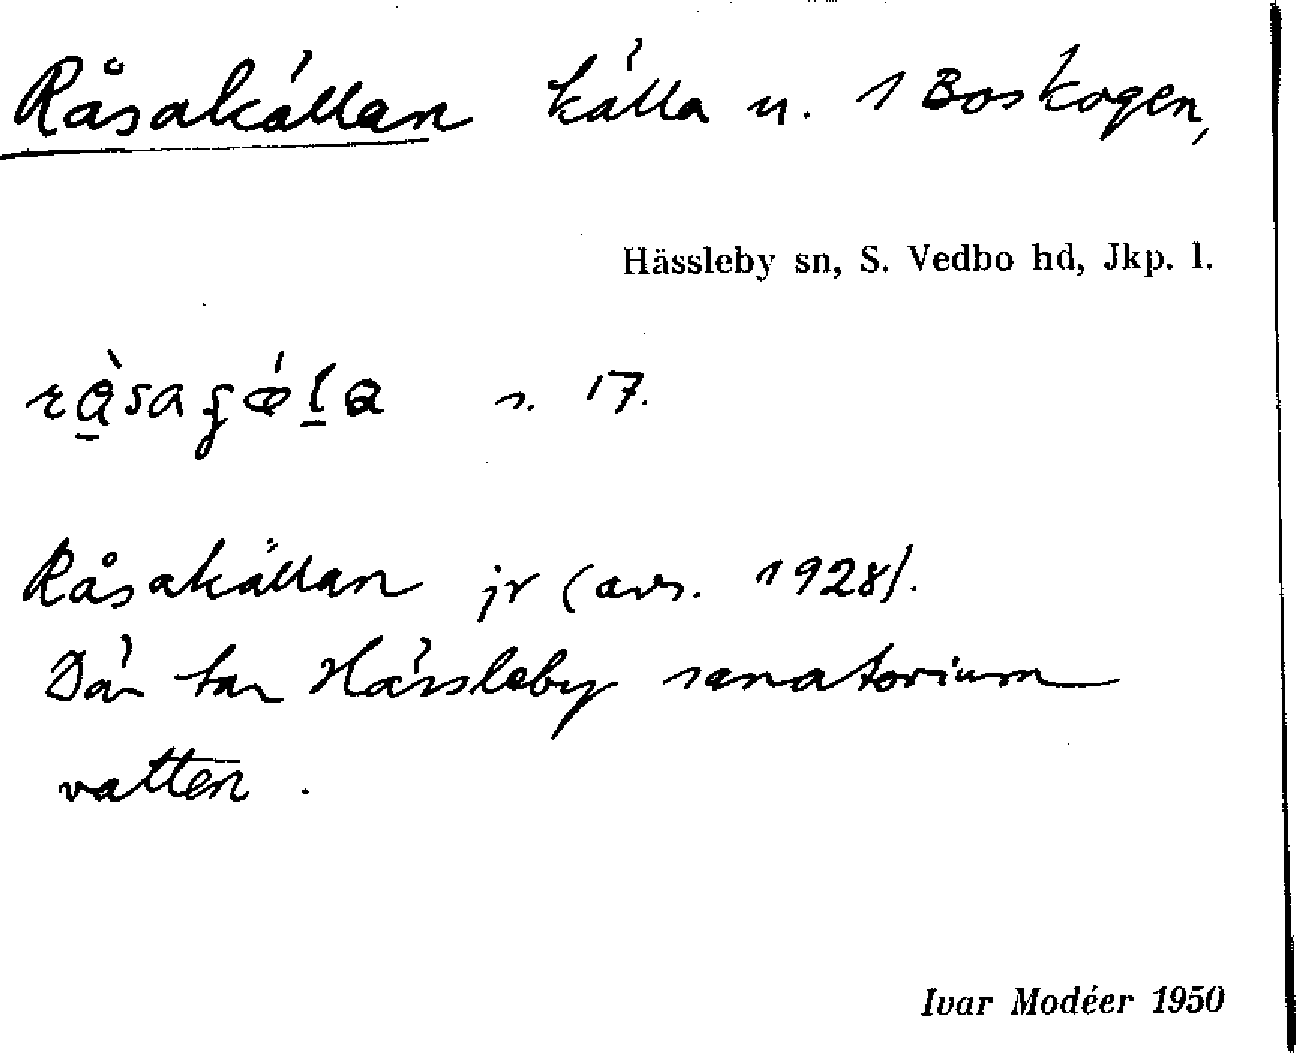 Råsakällan källa u. 1 Boskogen,
Hässleby sn, S. Vedbo hd, Jkp. l.
s. 17.
Råsakällan jr (avs. 1928).
Där tar Hässleby sanatorium
vatten.
Ivar Modéer 1950